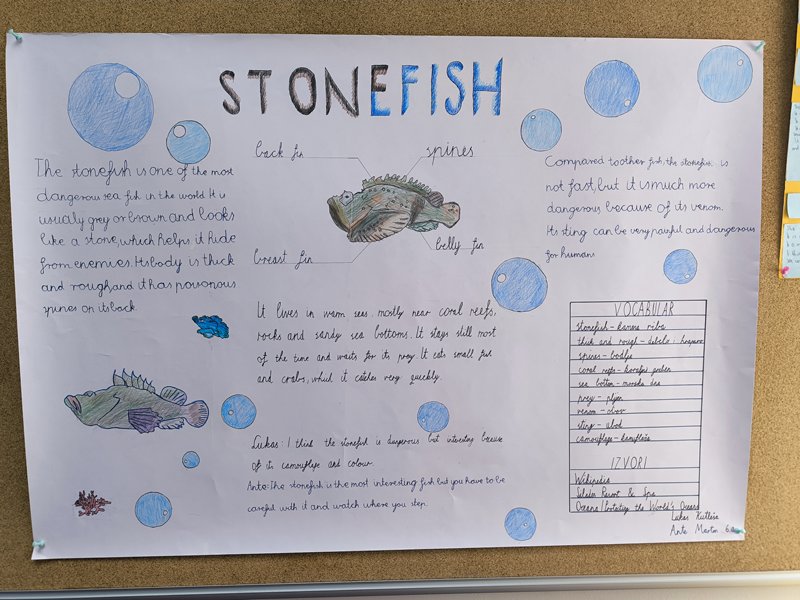 STONEFISH
The stonefish is one of the most
dangerous sea fish in the world. It is
usualy grey or brown and looks
like a stone, which helps it hide
from enemies. Its body is thick
and rough and it has poisonous
spines on its back.
back fin
spines
breast fin
belly fin
Compared to other fish, the stonefish is
not fast, but it is much more
dangerous because of its venom.
Its sting can be very painful and dangerous
for humans
It lives in warm seas, mostly near coral reefs,
rocks and sandy sea bottoms. It stays still most
of the time and waits for its prey. It eats small fish
and crabs, which it catches very quickly.
Lukas: I think the stonefish is dangerous but interesting because
of its camouflage and colour.
Ante: The stonefish is the most interesting fish but you have to be
careful with it and watch where you step.
VOCABULAR
stonefish - kamena riba
thick and rough - debelo i hrapavo
spines - bodlje
coral reefs - koraljni greben
sea bottom - morsko dno
prey - plijen
venom - otrov
sting - ubod
camouflage - kamuflaža
IZVORI
Wikipedia
Resort & Spa
Oceana | Protecting the World's Oceans
Lukas
Ante Martin 6.a